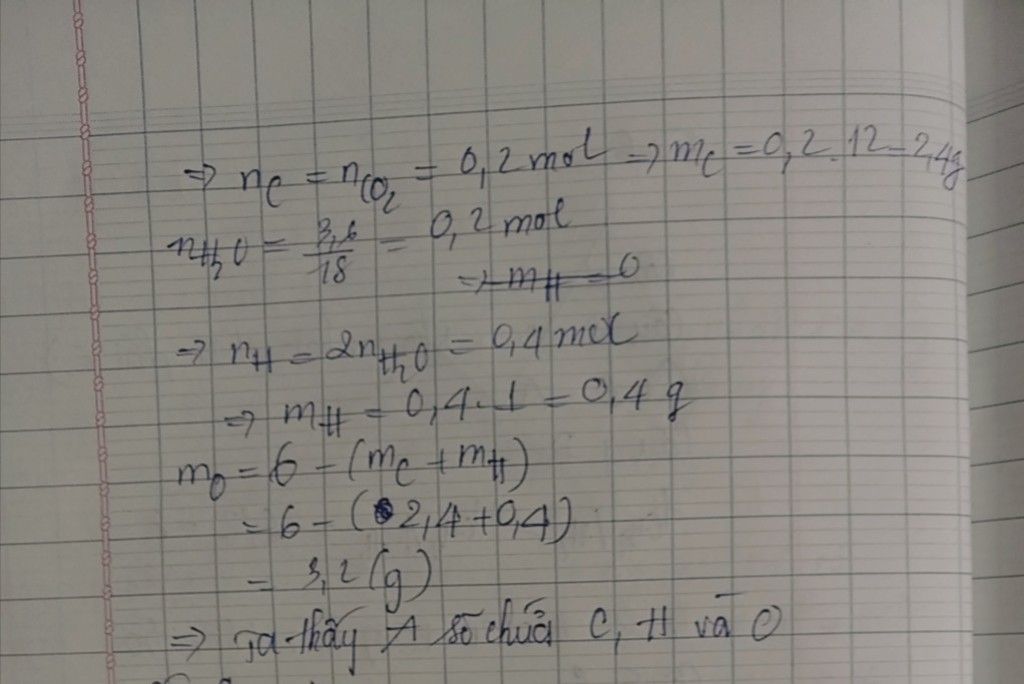 ⇒ n_C = n_CO₂ = 0,2 mol ⇒ m_C = 0,2 . 12 = 2,4g
n_H₂O = 3,6/18 = 0,2 mol
⇒ m_H = 0
⇒ n_H = 2n_H₂O = 0,4 mol
⇒ m_H = 0,4 . 1 = 0,4 g
m_O = 6 - (m_C + m_H)
= 6 - (2,4 + 0,4)
= 3,2 (g)
⇒ Ta thấy A chứa C, H và O